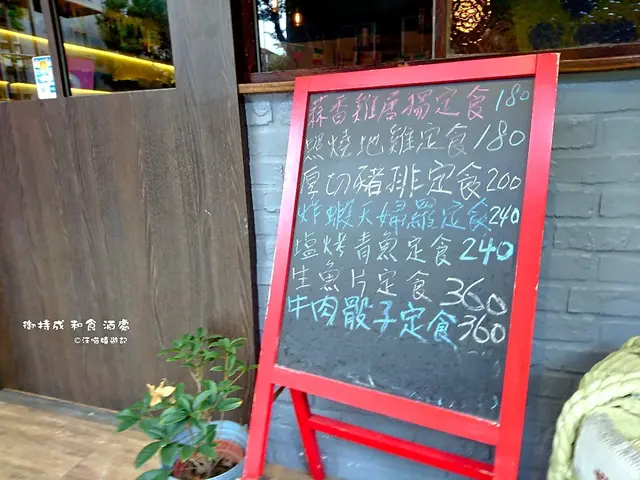 蒜香雞唐揚定食 180
照燒地雞定食 180
厚切豬排定食 200
炸蝦天婦羅定食 240
塩烤青魚定食 240
生魚片定食 360
牛肉骰子定食 360
御持成 和食 酒處